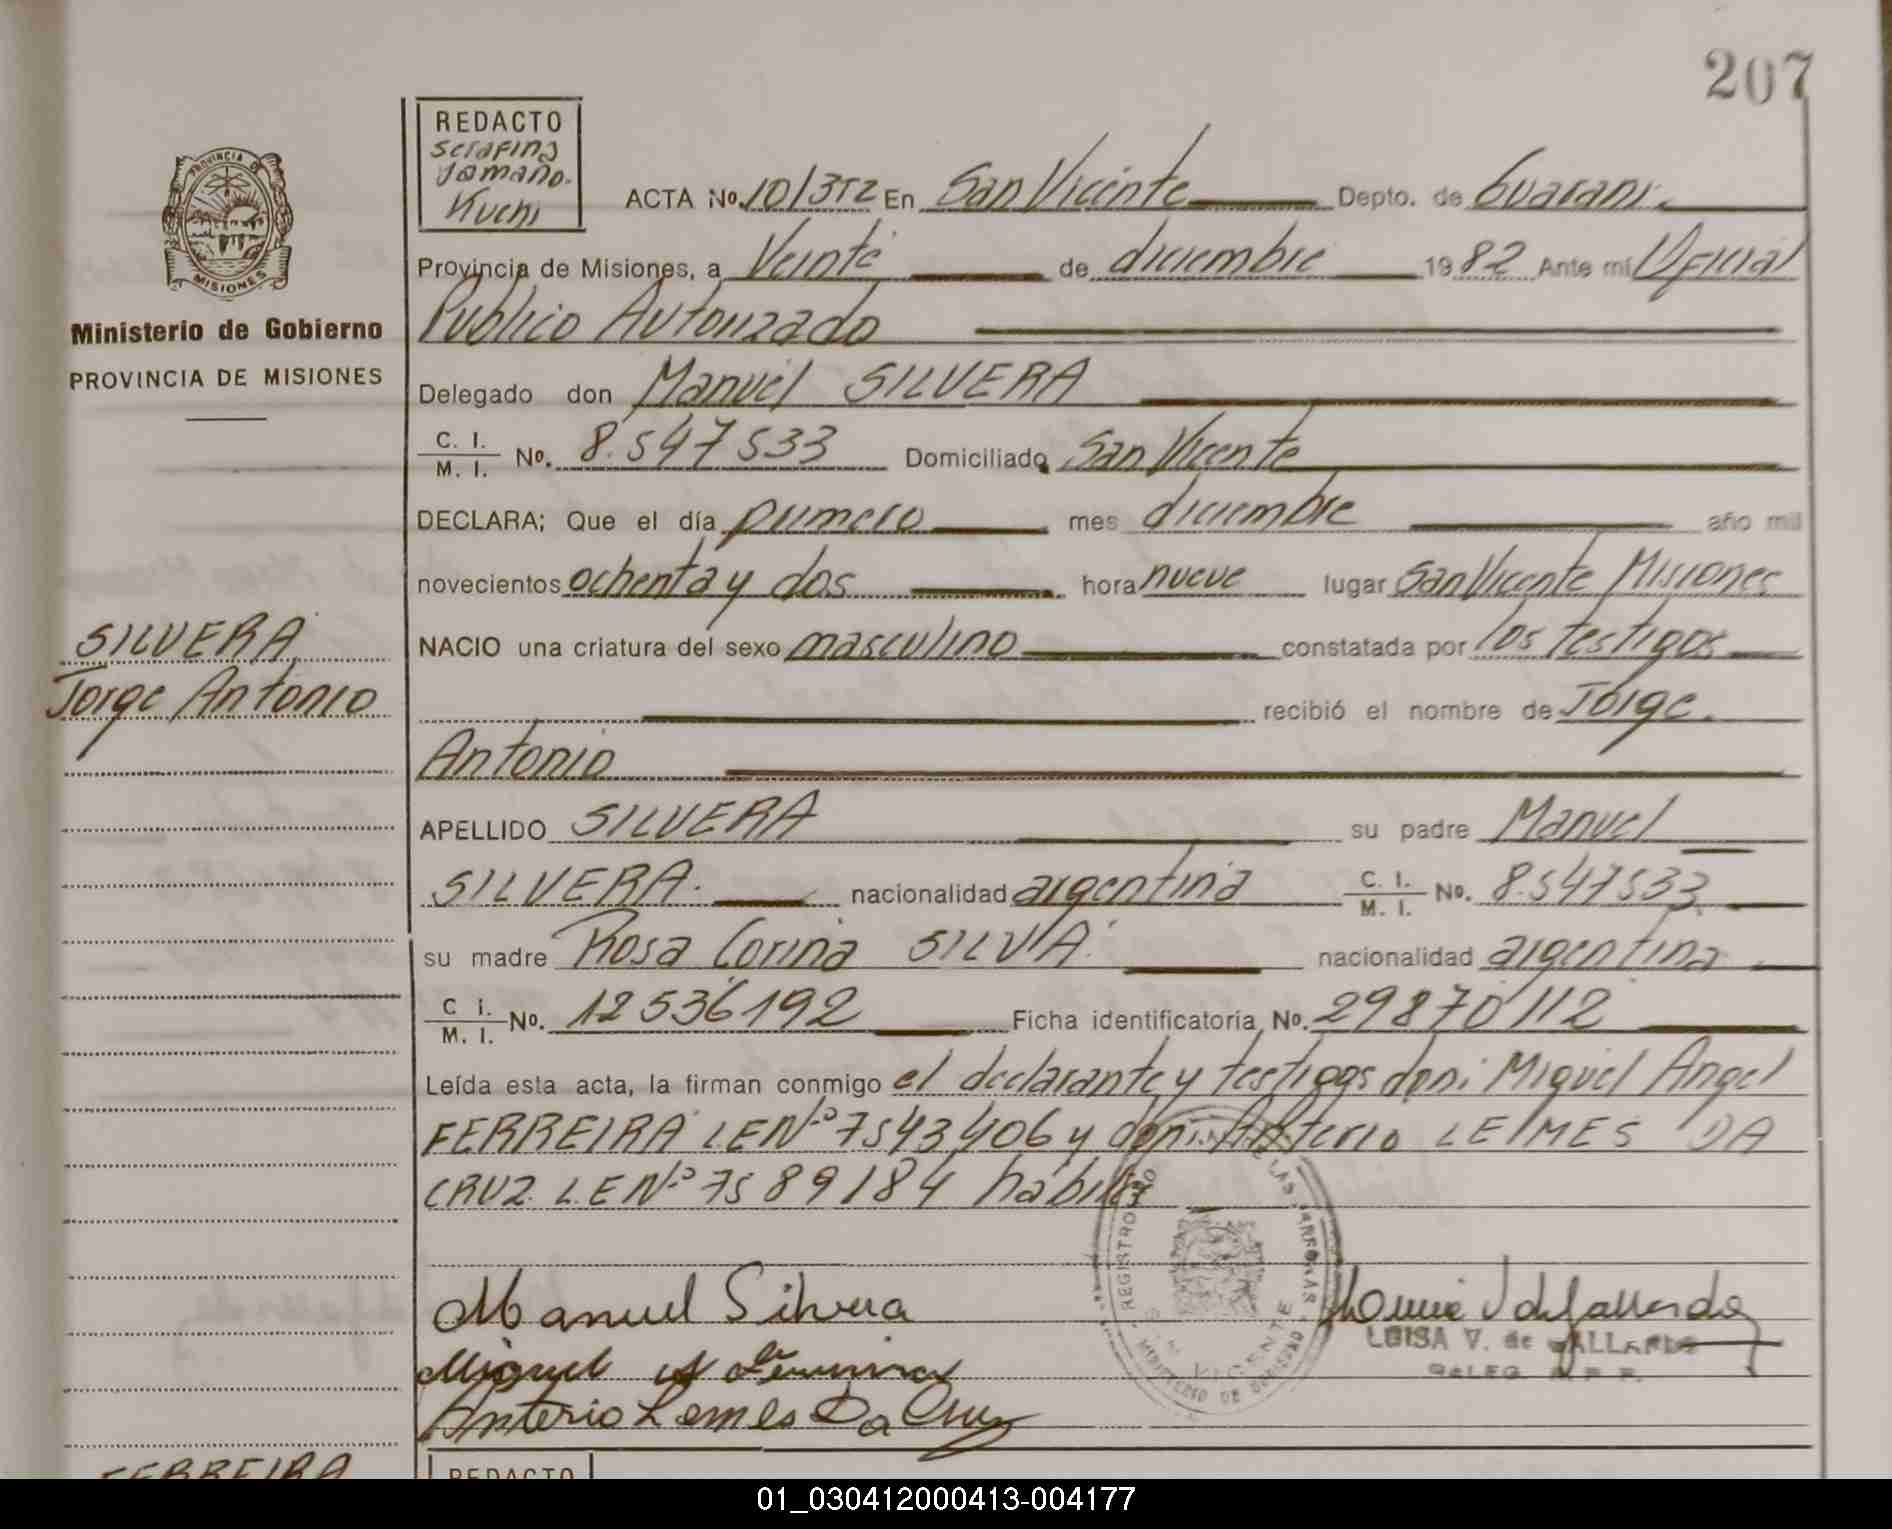 207
REDACTO
Serafina
Tamaño.
Kuchi
PROVINCIA DE
MISIONES
Ministerio de Gobierno
PROVINCIA DE MISIONES
SILVERA
Jorge Antonio
ACTA Nº. 10/352 En San Vicente Depto. de Guarani.
Provincia de Misiones, a Veinte de diciembre 1982 Ante mi Oficial
Publico Autorizado
Delegado don Manuel SILVERA
C. I.
M. I. Nº. 8.547533 Domiciliado San Vicente
DECLARA; Que el día primero mes diciembre año mil
novecientos ochenta y dos hora nueve lugar San Vicente Misiones
NACIO una criatura del sexo masculino constatada por los testigos
recibió el nombre de Jorge.
Antonio
APELLIDO SILVERA su padre Manuel
SILVERA. nacionalidad argentina C. I. M. I. Nº. 8.547533
su madre Rosa Corina SILVA. nacionalidad argentina
C I. M. I. Nº. 12536192 Ficha identificatoria Nº. 29870112
Leída esta acta, la firman conmigo el declarante y testigos don: Miguel Angel
FERREIRA LE Nº 7543406 y don: Anterio LEMES DA
CRUZ. L.E Nº 7589184 habiles
Manuel Silvera
Miguel A Ferreira
Anterio Lemes Da Cruz
REGISTRO DE LAS PERSONAS
SAN VICENTE
MINISTERIO DE GOBIERNO
LUISA V. de GALLARDO
DELEG. R. P. P.
FERREIRA
REDACTO
01_030412000413-004177